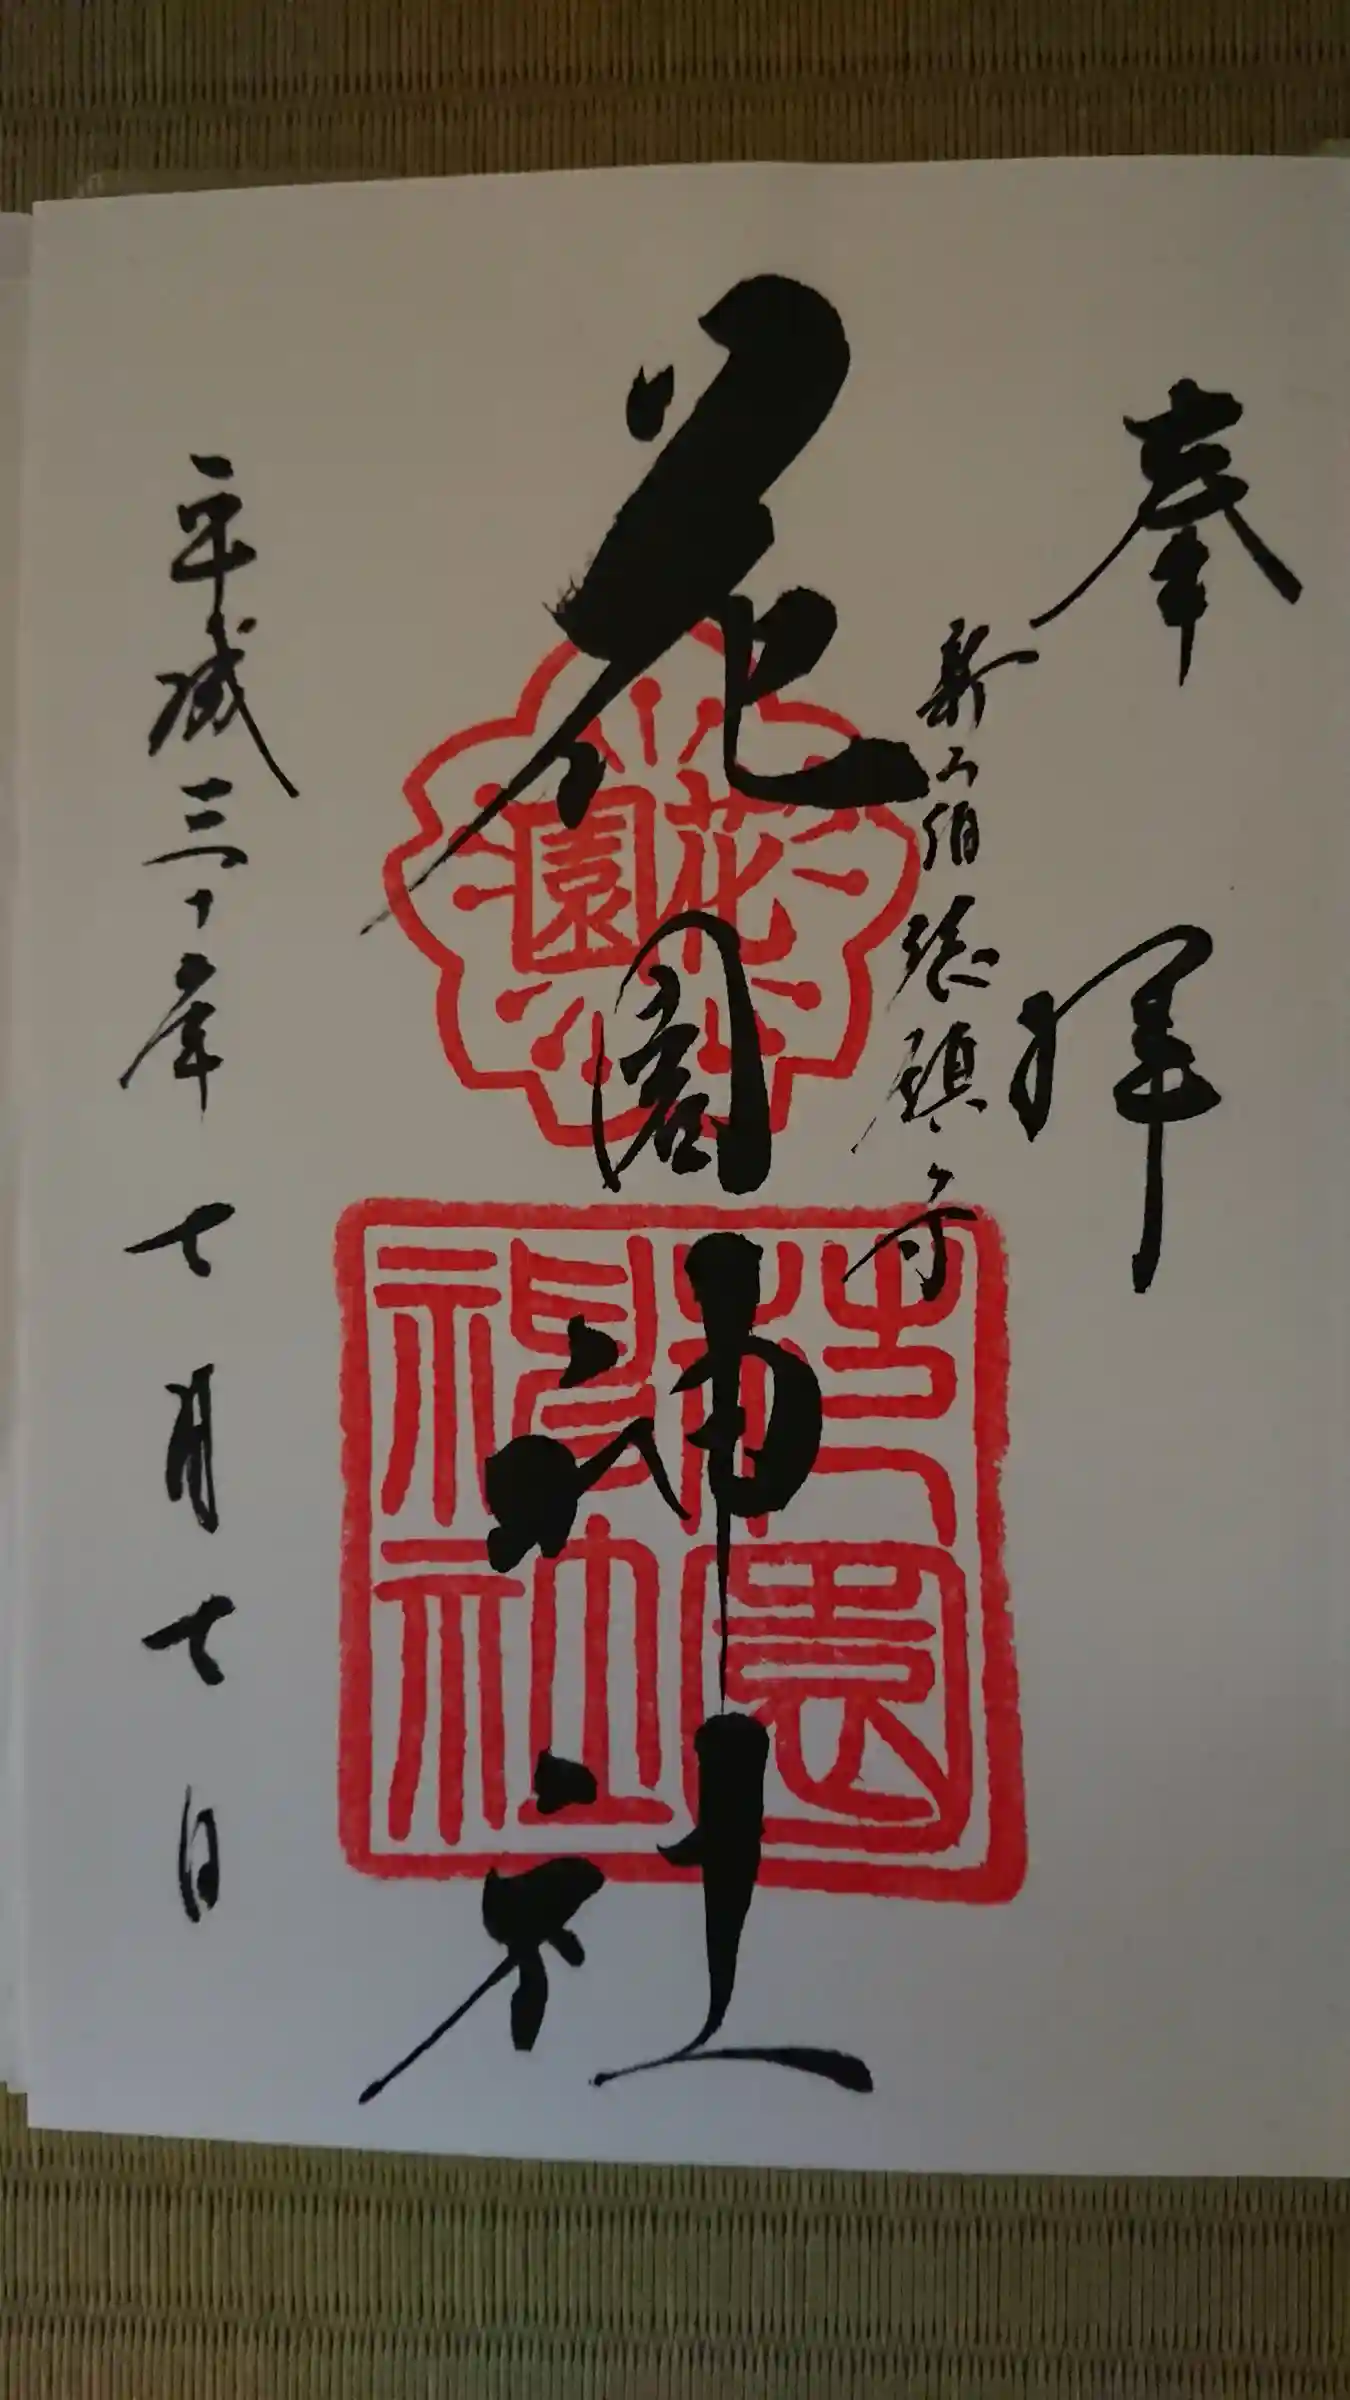 奉拝
新宿総鎮守
花園神社
花園
花園神社
平成三十年七月七日